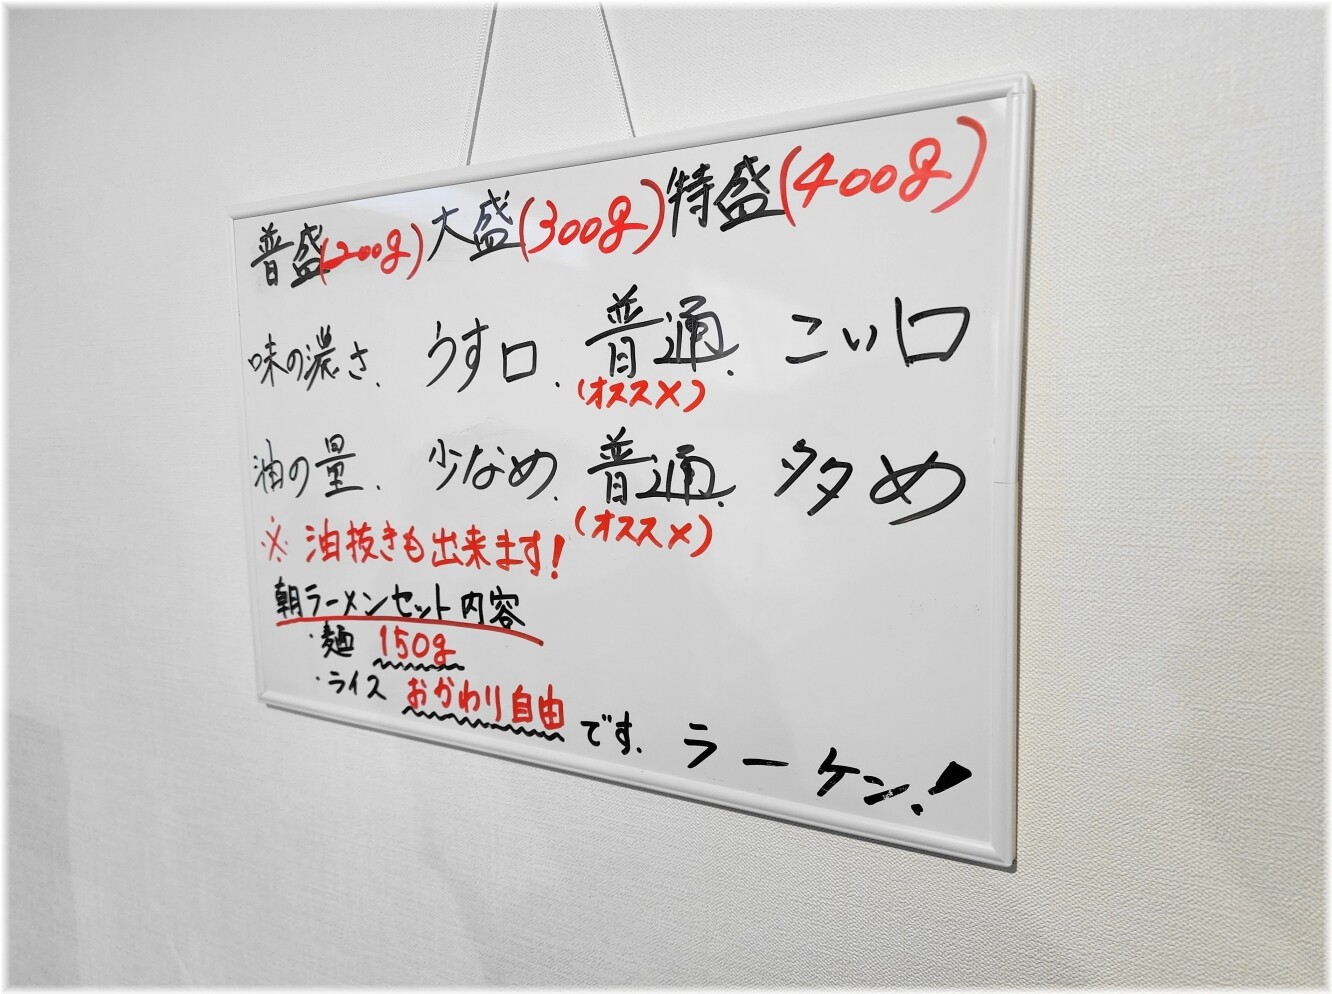 普盛(200g) 大盛(300g) 特盛(400g)
味の濃さ、 うす口、 普通、 こい口
(オススメ)
油の量、 少なめ、 普通、 多め
(オススメ)
※ 油抜きも出来ます!
朝ラーメンセット内容
・麺 150g
・ライス おかわり自由 です、 ラーケン!